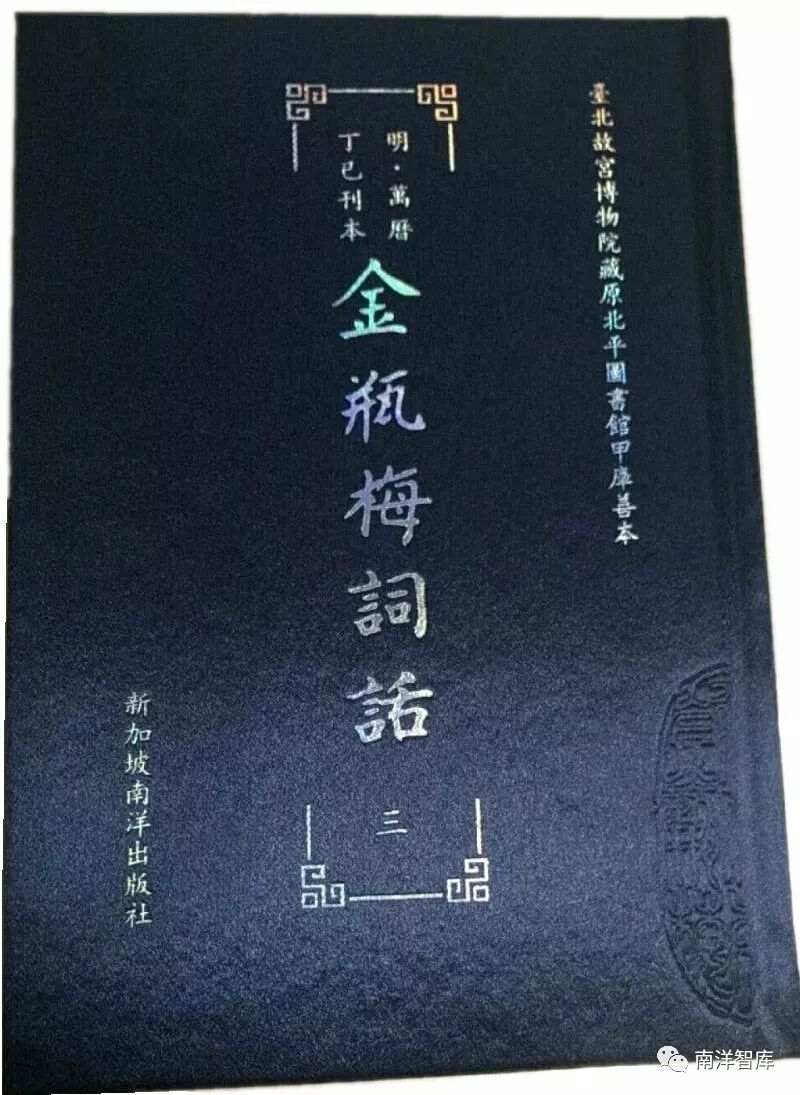 臺北故宮博物院藏原北平圖書館甲庫善本
明·萬曆
丁巳刊本
金瓶梅詞話
三
新加坡南洋出版社
南洋智库